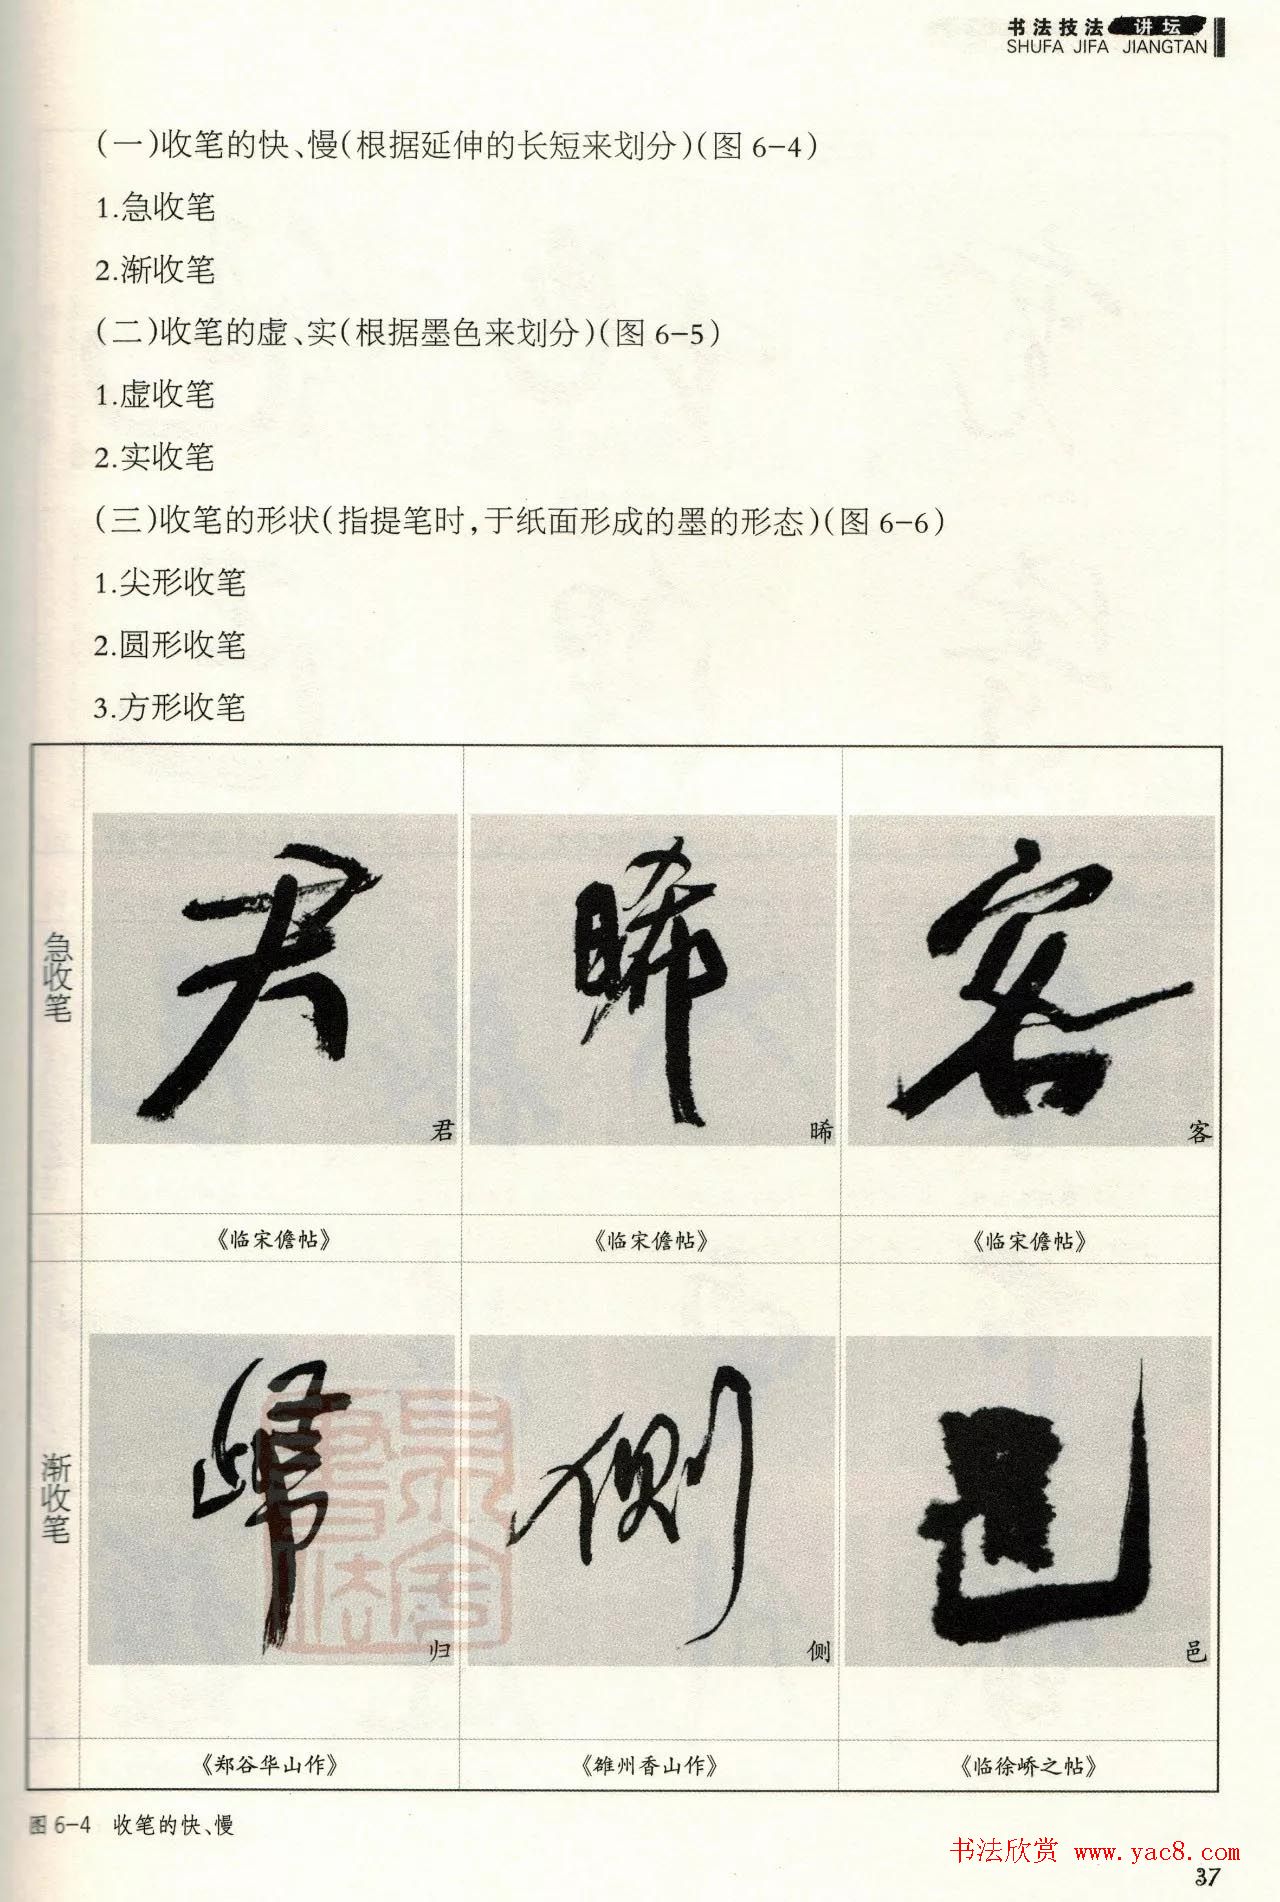 书法技法 讲坛
SHUFA JIFA JIANGTAN
(一)收笔的快、慢(根据延伸的长短来划分)(图6-4)
1.急收笔
2.渐收笔
(二)收笔的虚、实(根据墨色来划分)(图6-5)
1.虚收笔
2.实收笔
(三)收笔的形状(指提笔时,于纸面形成的墨的形态)(图6-6)
1.尖形收笔
2.圆形收笔
3.方形收笔
急收笔
君
晞
客
《临宋儋帖》
《临宋儋帖》
《临宋儋帖》
渐收笔
归
侧
邑
《郑谷华山作》
《雒州香山作》
《临徐峤之帖》
图6-4 收笔的快、慢
书法欣赏 www.yac8.com
37